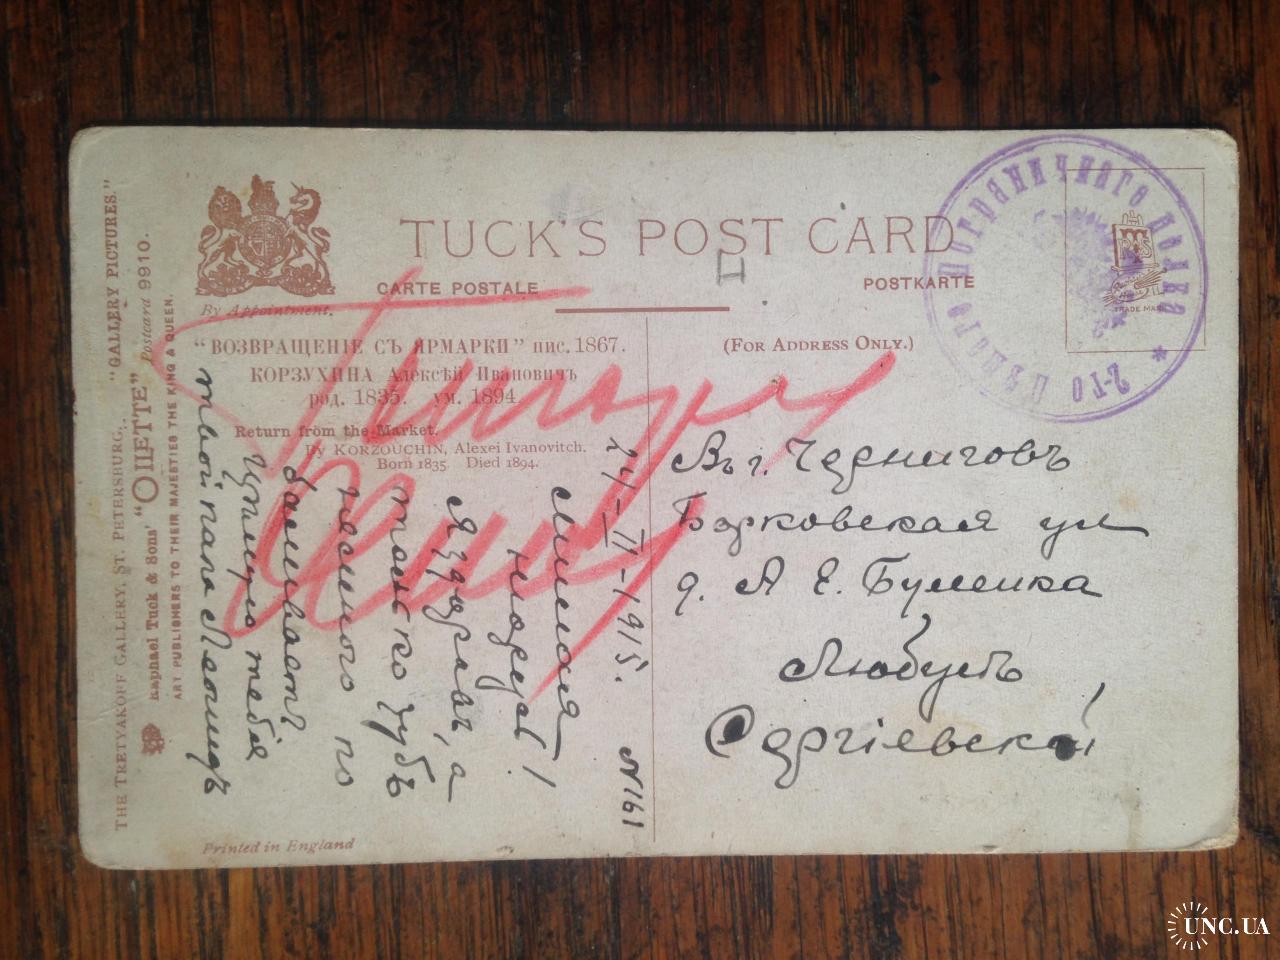 TUCK'S POST CARD
CARTE POSTALE
POSTKARTE
By Appointment.
"ВОЗВРАЩЕНІЕ СЪ ЯРМАРКИ" пис. 1867.
КОРЗУХИНА Алексѣй Ивановичъ
род. 1835. ум. 1894.
Return from the Market.
By KORZOUCHIN, Alexei Ivanovitch.
Born 1835. Died 1894.
(FOR ADDRESS ONLY.)
TRADE MARK
2-го Пѣшаго Пограничнаго полка *
Въ г. Черниговъ
Борковская ул
д. А. Е. Буменка
Любусь
Сергіевской
24-II-1915. N 161
Милая
Нюруся!
Я здравъ, а
только зубъ
немного по
баливаетъ
Цѣлую тебя
твой папа Леонидъ
THE TRETYAKOFF GALLERY, ST. PETERSBURG. "GALLERY PICTURES."
Raphael Tuck & Sons' "OILETTE" Postcard 9910.
ART PUBLISHERS TO THEIR MAJESTIES THE KING & QUEEN.
Printed in England
UNC.UA